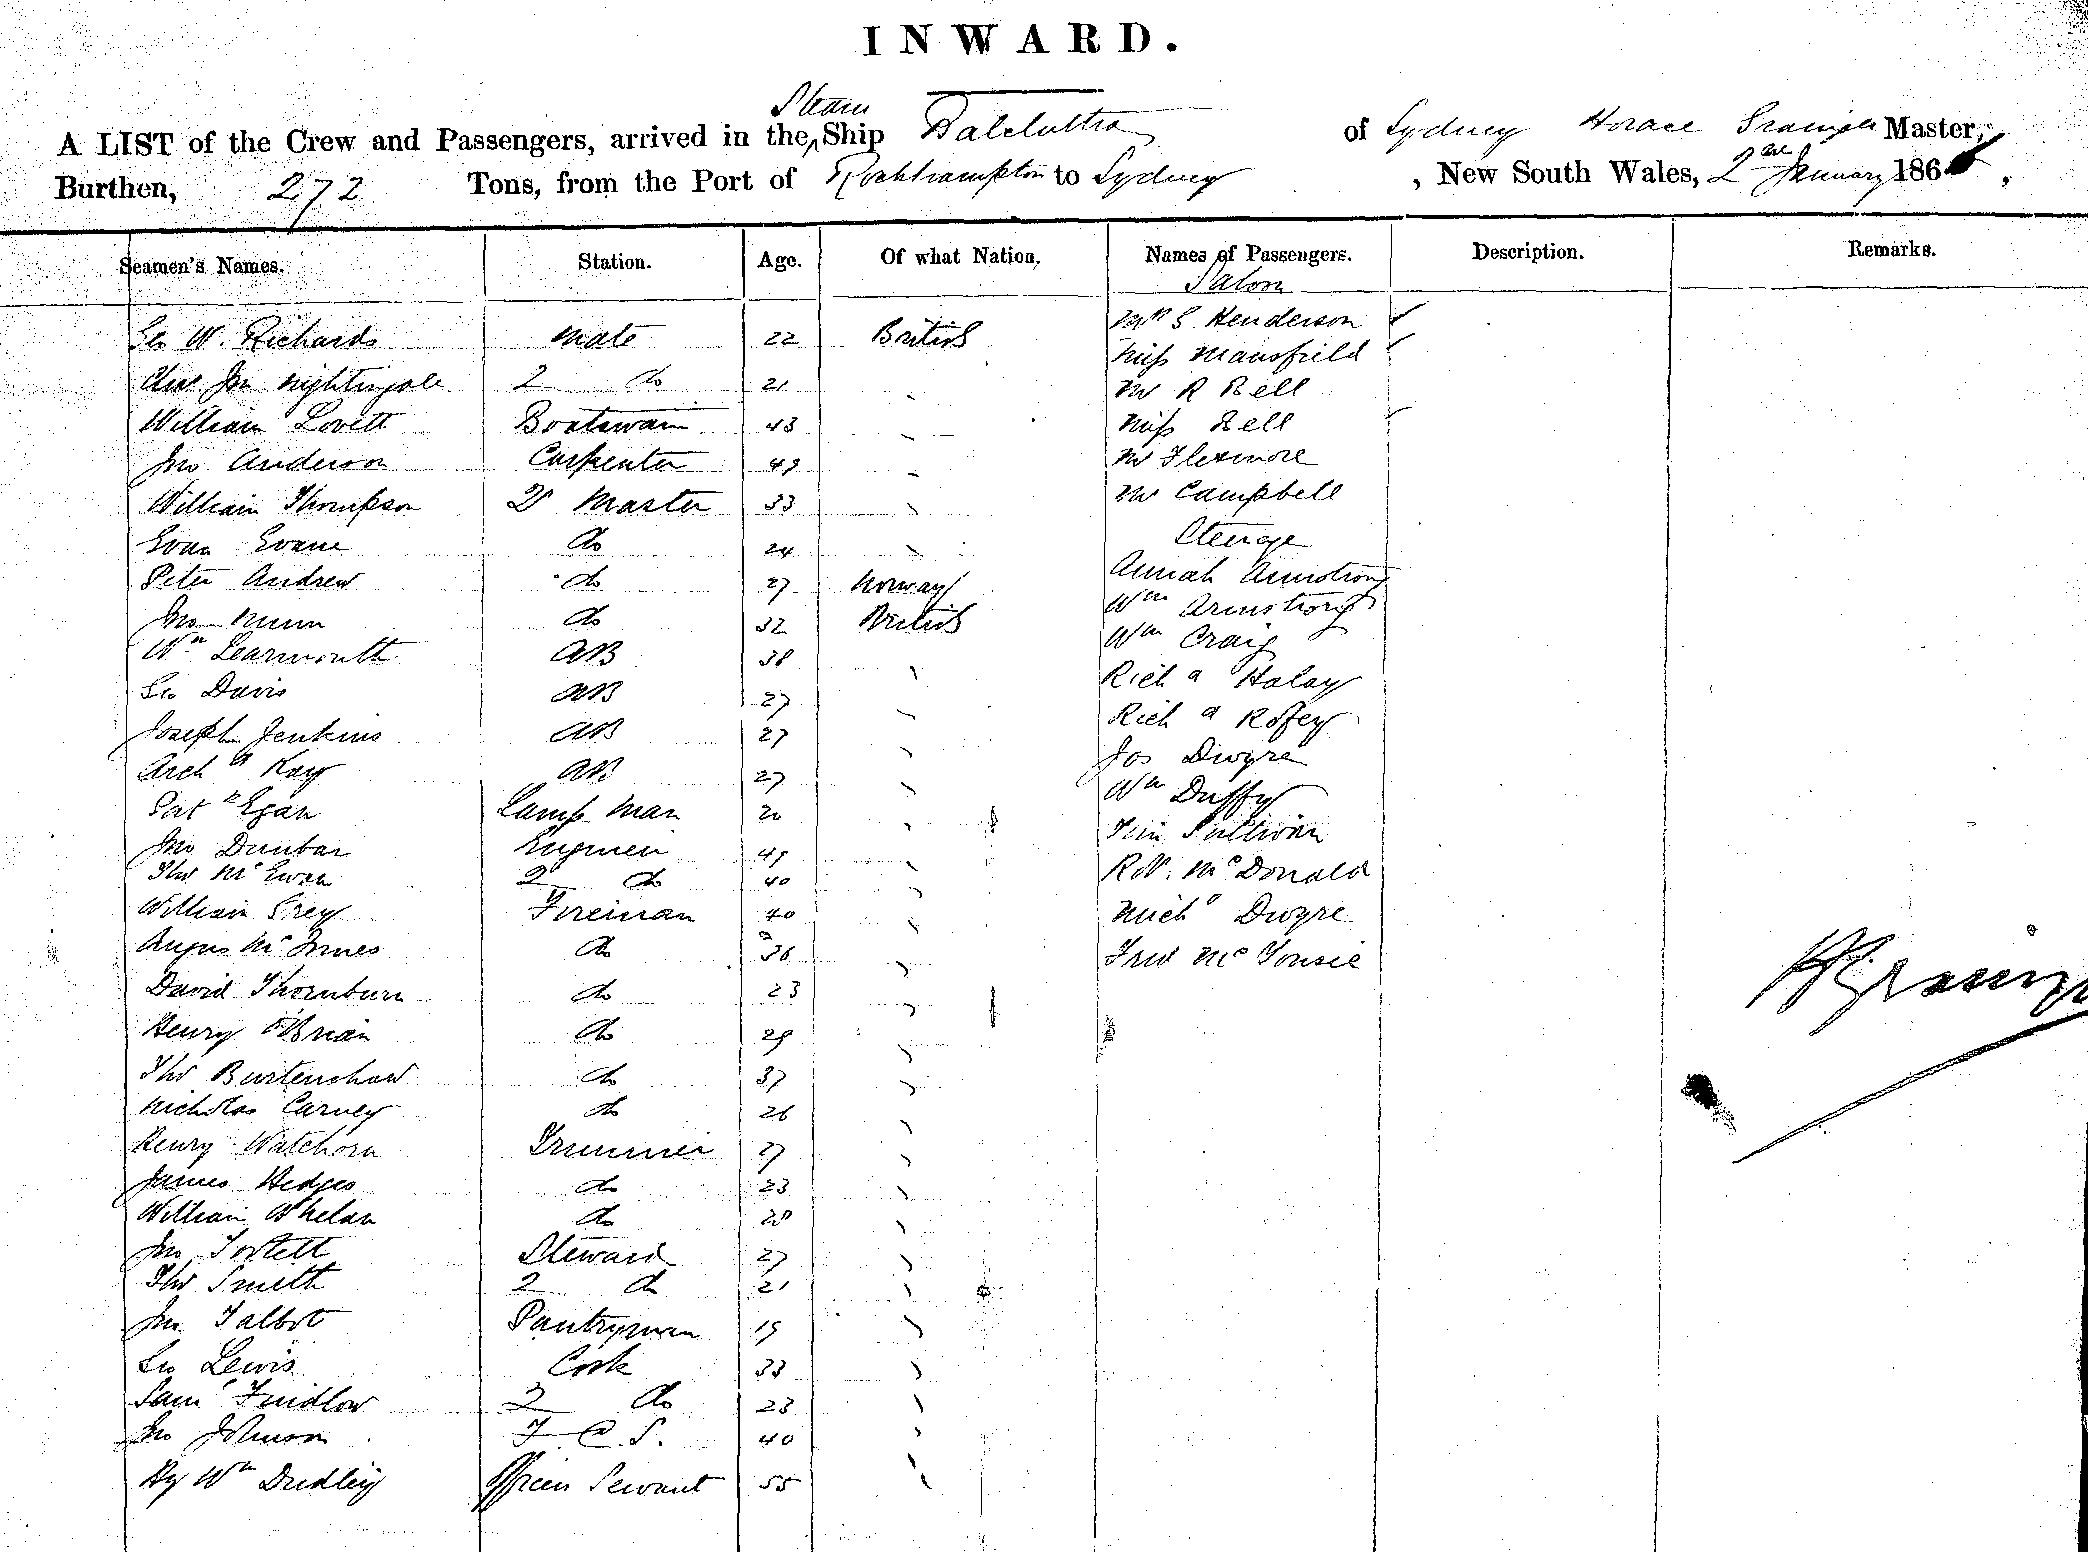 INWARD.
Steam
A LIST of the Crew and Passengers, arrived in the Ship Balclutha of Sydney Horace Master,
Burthen, 272 Tons, from the Port of Rockhampton to Sydney , New South Wales, 2nd January 186 ,
Seamen's Names. Station. Age. Of what Nation. Names of Passengers. Description. Remarks.
Saloon
Geo W. Richards Mate 22 British Mrs S Henderson
Miss Mansfield
Chas Jno Nightingale 2 do 21 Mr R Bell
William Lovett Boatswain 43 Miss Bell
Jno Anderson Carpenter 49 Mr Flexmore
William Thompson Qr Master 33 Mr Campbell
Evan Evans do 24 Steerage
Peter Andrew do 27 Norway Annah Armstrong
Jno Munn do 32 British Wm Armstrong
Wm Learmouth AB 38 Wm Craig
Geo Davis AB 27 Richd Halay
Joseph Jenkins AB 27 Richd
Archd Kay AB 27 Jos Dwyre
Patk Egan Lamp Man 20 Wm Duffy
Jno Dunbar Engineer 49 Tim Sullivan
Thos McEwan 2 do 40 Robt McDonald
William Grey Fireman 40 Michl Dwyre
Angus McInnes do 36 McTousie
David Thornburn do 23
Henry O'Brian do 29
Thos Burtenshaw do 37
Nicholas Carney do 26
Henry Watchorn Trimmer 27
James Hedges do 23
William Whelan do 28
Jno Steward 27
Thos Smith 2 do 21
Jno Talbot Pantryman 19
Geo Lewis Cook 33
Saml Findlow 2 do 23
Jno Johnson F C S. 40
Hy Wm Dudley Officers Servant 55